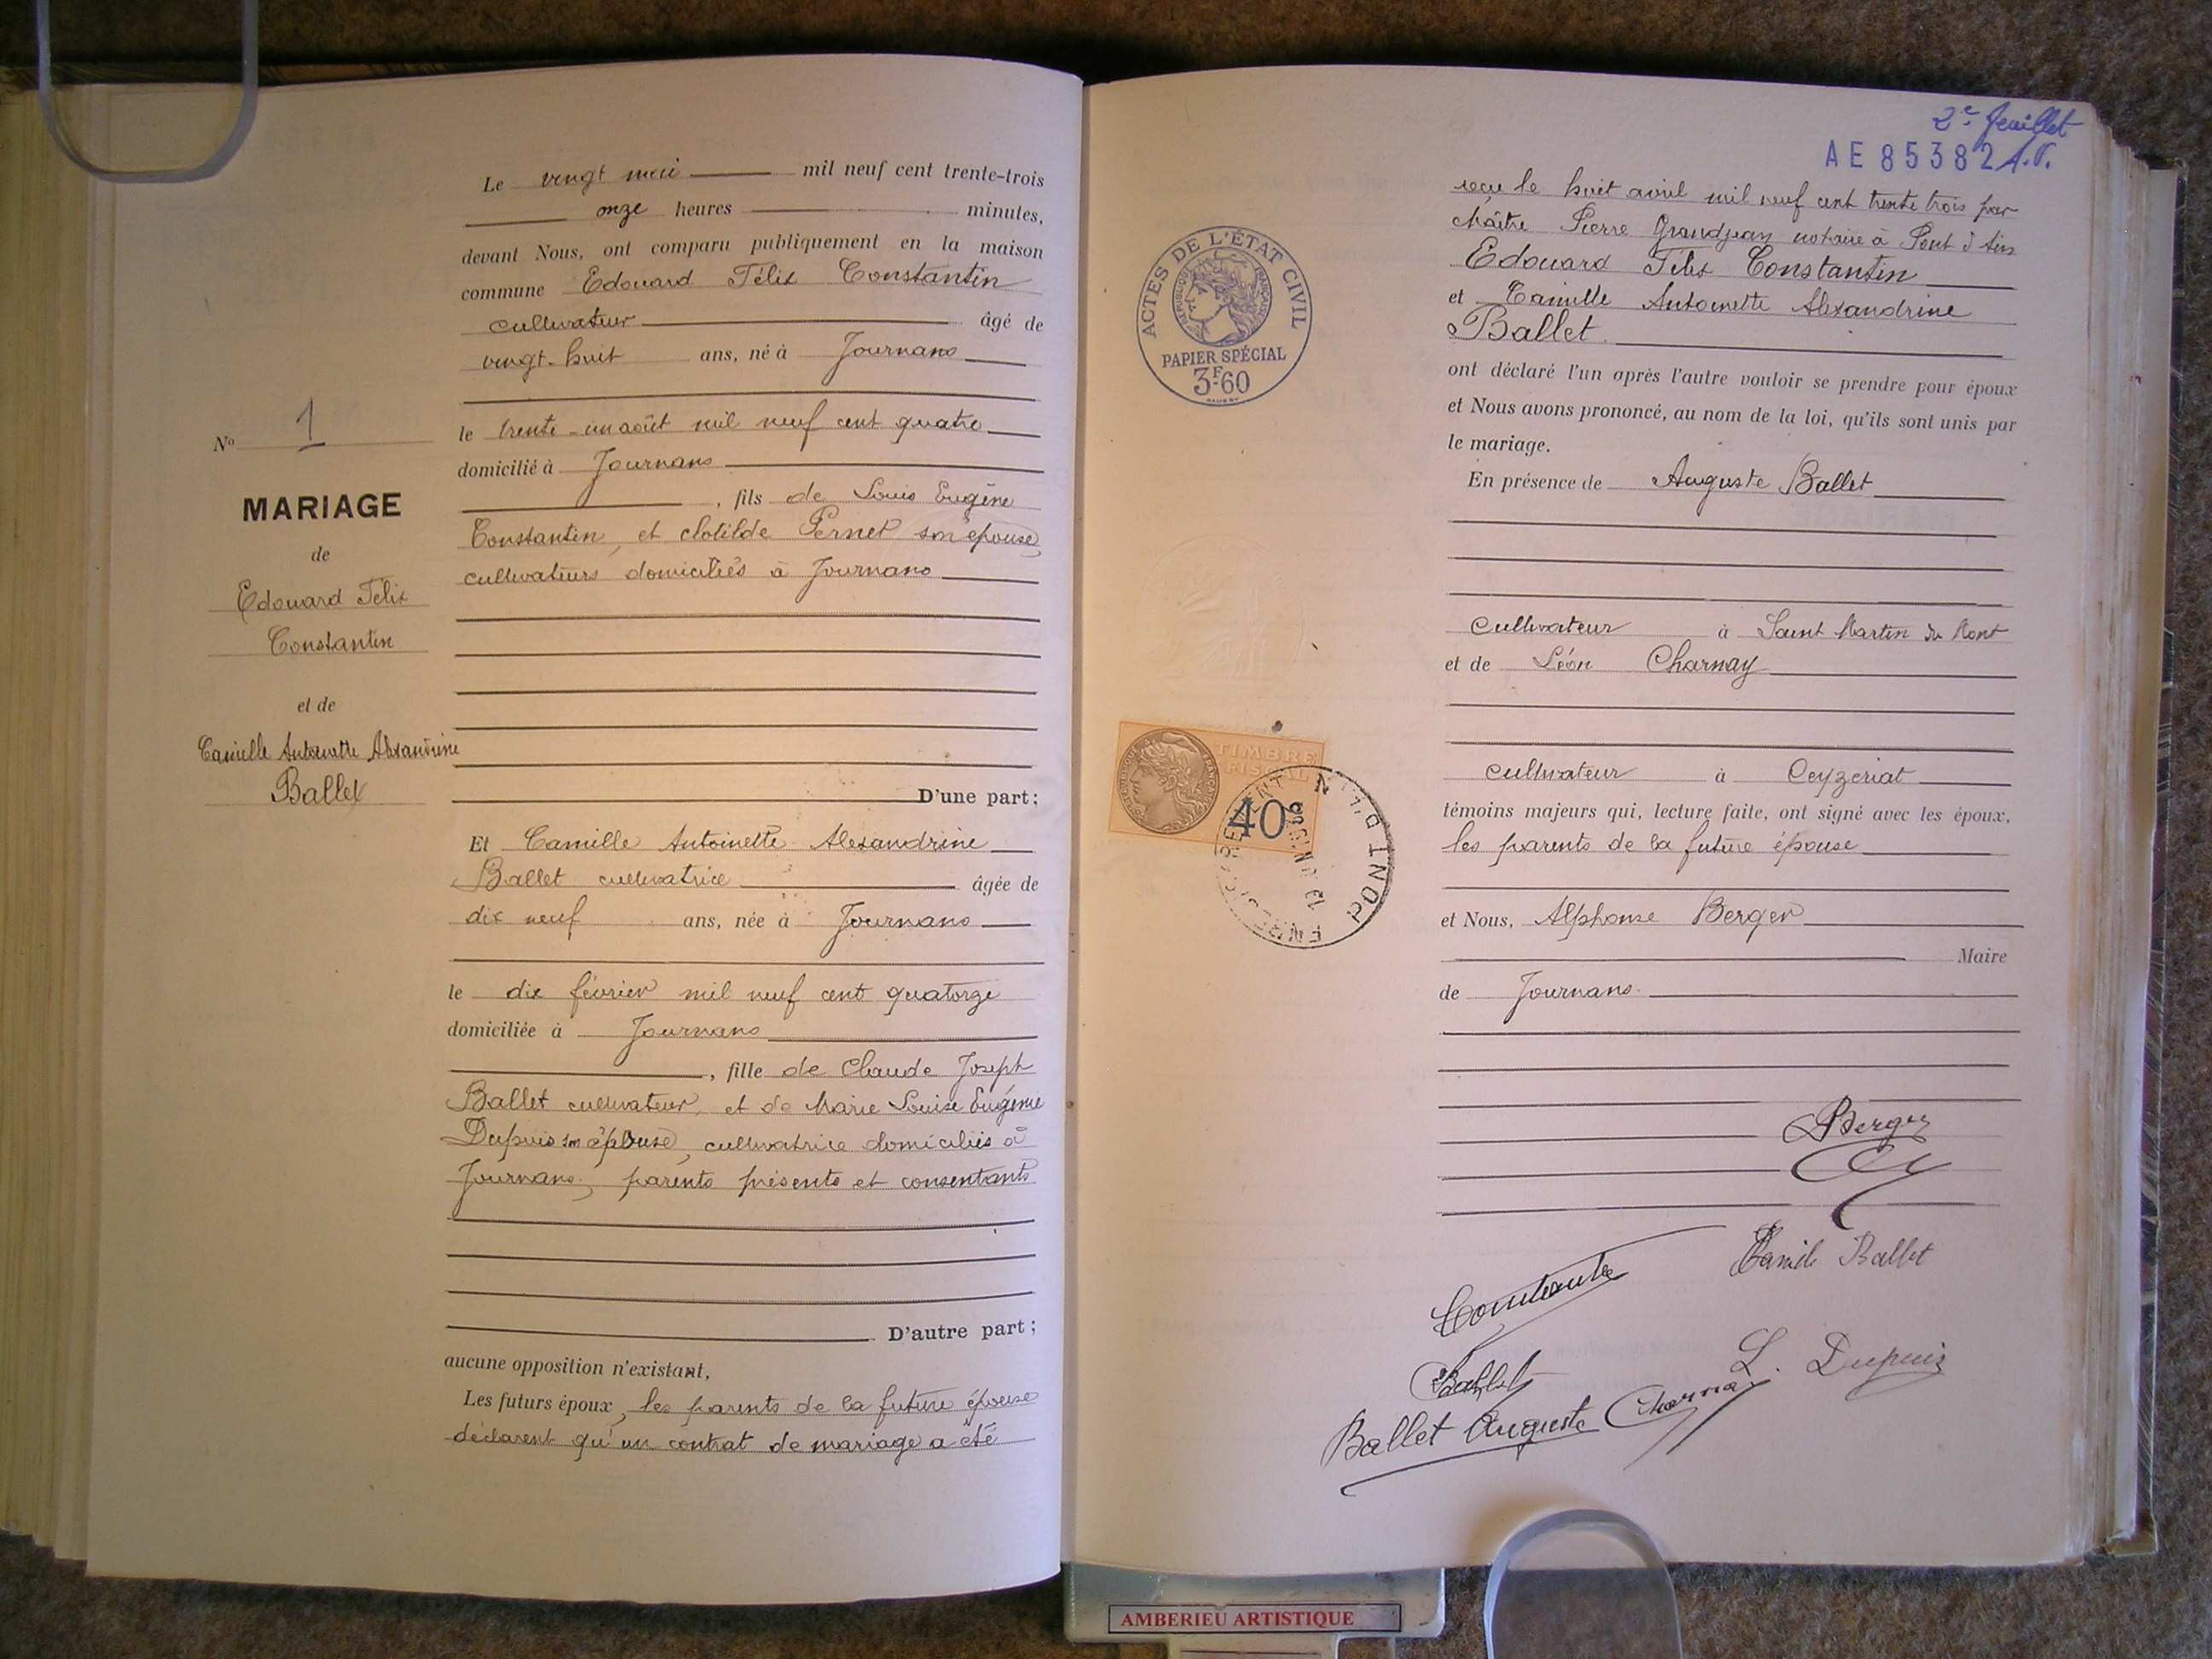 Le vingt mai mil neuf cent trente-trois
onze heures minutes,
devant Nous, ont comparu publiquement en la maison
commune Edouard Félix Constantin
cultivateur âgé de
vingt-huit ans, né à Journans
le trente-un août mil neuf cent quatre
domicilié à Journans
, fils de Louis Eugène
Constantin, et clotilde Pernet son épouse,
cultivateurs domiciliés à Journans
D'une part;
Nº 1
MARIAGE
de
Edouard Félix
Constantin
et de
Camille Antoinette Alexandrine
Ballet
Et Camille Antoinette Alexandrine
Ballet cultivatrice âgée de
dix neuf ans, née à Journans
le dix février mil neuf cent quatorze
domiciliée à Journans
, fille de Claude Joseph
Ballet cultivateur, et de Marie Louise Eugénie
Dupuis son épouse, cultivatrice domiciliés à
Journans, parents présents et consentants
D'autre part;
aucune opposition n'existant,
Les futurs époux, les parents de la future épouse
déclarent qu'un contrat de mariage a été
2e feuillet
AE 85382
reçu le huit avril mil neuf cent trente trois par
Maître Pierre Grandjean notaire à Pont d'Ain
Edouard Félix Constantin
et Camille Antoinette Alexandrine
Ballet
ont déclaré l'un après l'autre vouloir se prendre pour époux
et Nous avons prononcé, au nom de la loi, qu'ils sont unis par
le mariage.
En présence de Auguste Ballet
cultivateur à Saint Martin du Mont
et de Léon Charnay
cultivateur à Ceyzeriat
témoins majeurs qui, lecture faite, ont signé avec les époux,
les parents de la future épouse
et Nous, Alphonse Berger
Maire
de Journans
ABerger
Camille Ballet
Constantin
Ballet
L. Dupuis
Ballet Auguste Charnay
ACTES DE L'ÉTAT CIVIL
RÉPUBLIQUE FRANÇAISE
PAPIER SPÉCIAL
3F.60
TIMBRE
FISCAL
40
PONT D'AIN
AMBERIEU ARTISTIQUE